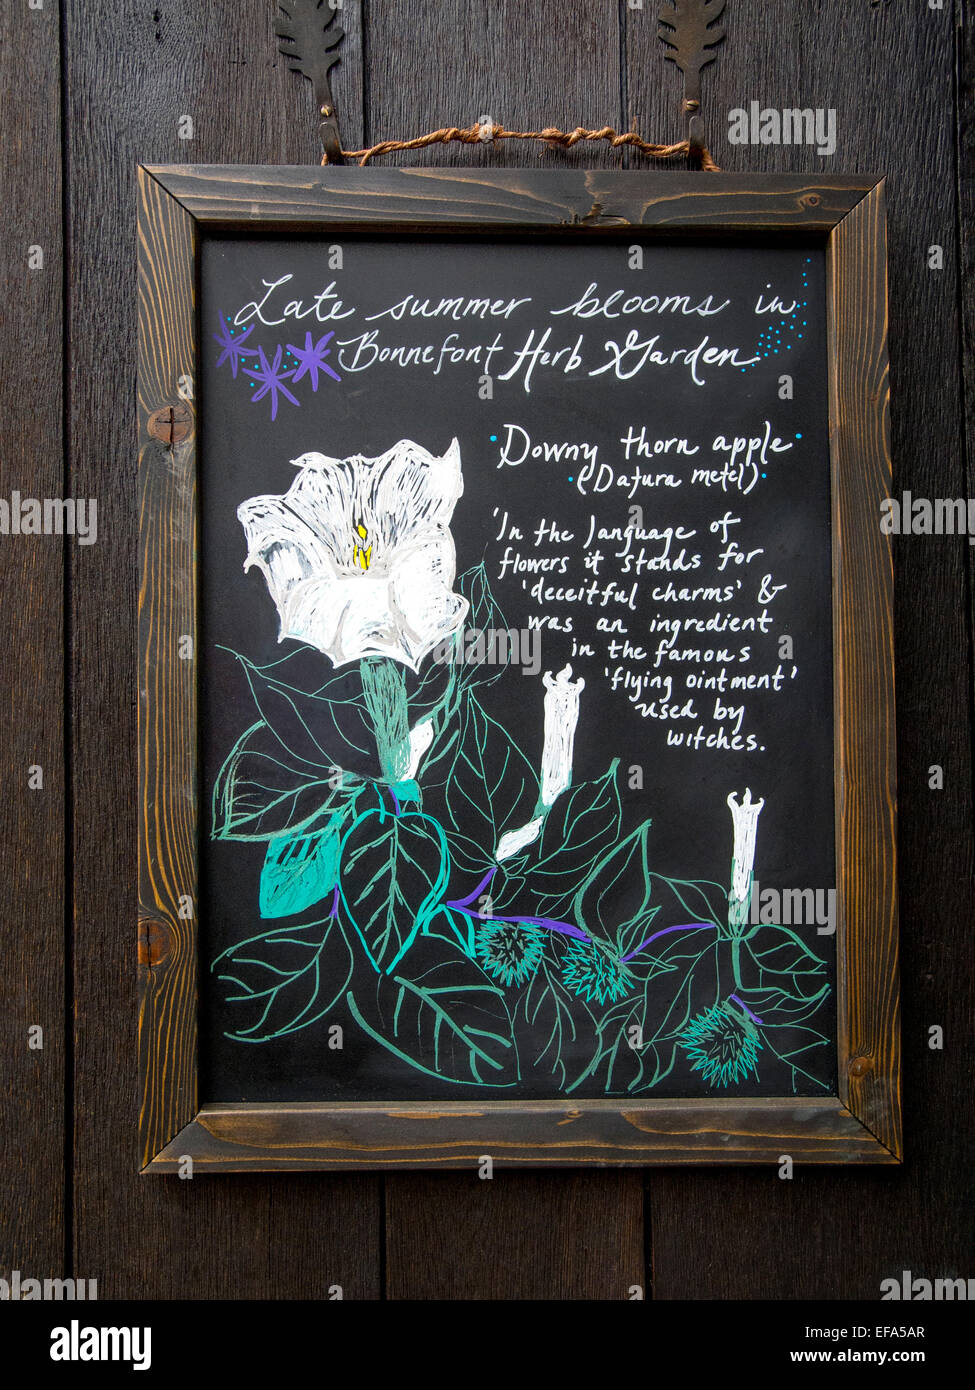 Late summer blooms in
Bonnefont Herb Garden
Downy thorn apple
(Datura metel)
'In the language of
flowers it stands for
'deceitful charms' &
was an ingredient
in the famous
'flying ointment'
used by
witches.
alamy
alamy
Image ID: EFA5AR
www.alamy.com